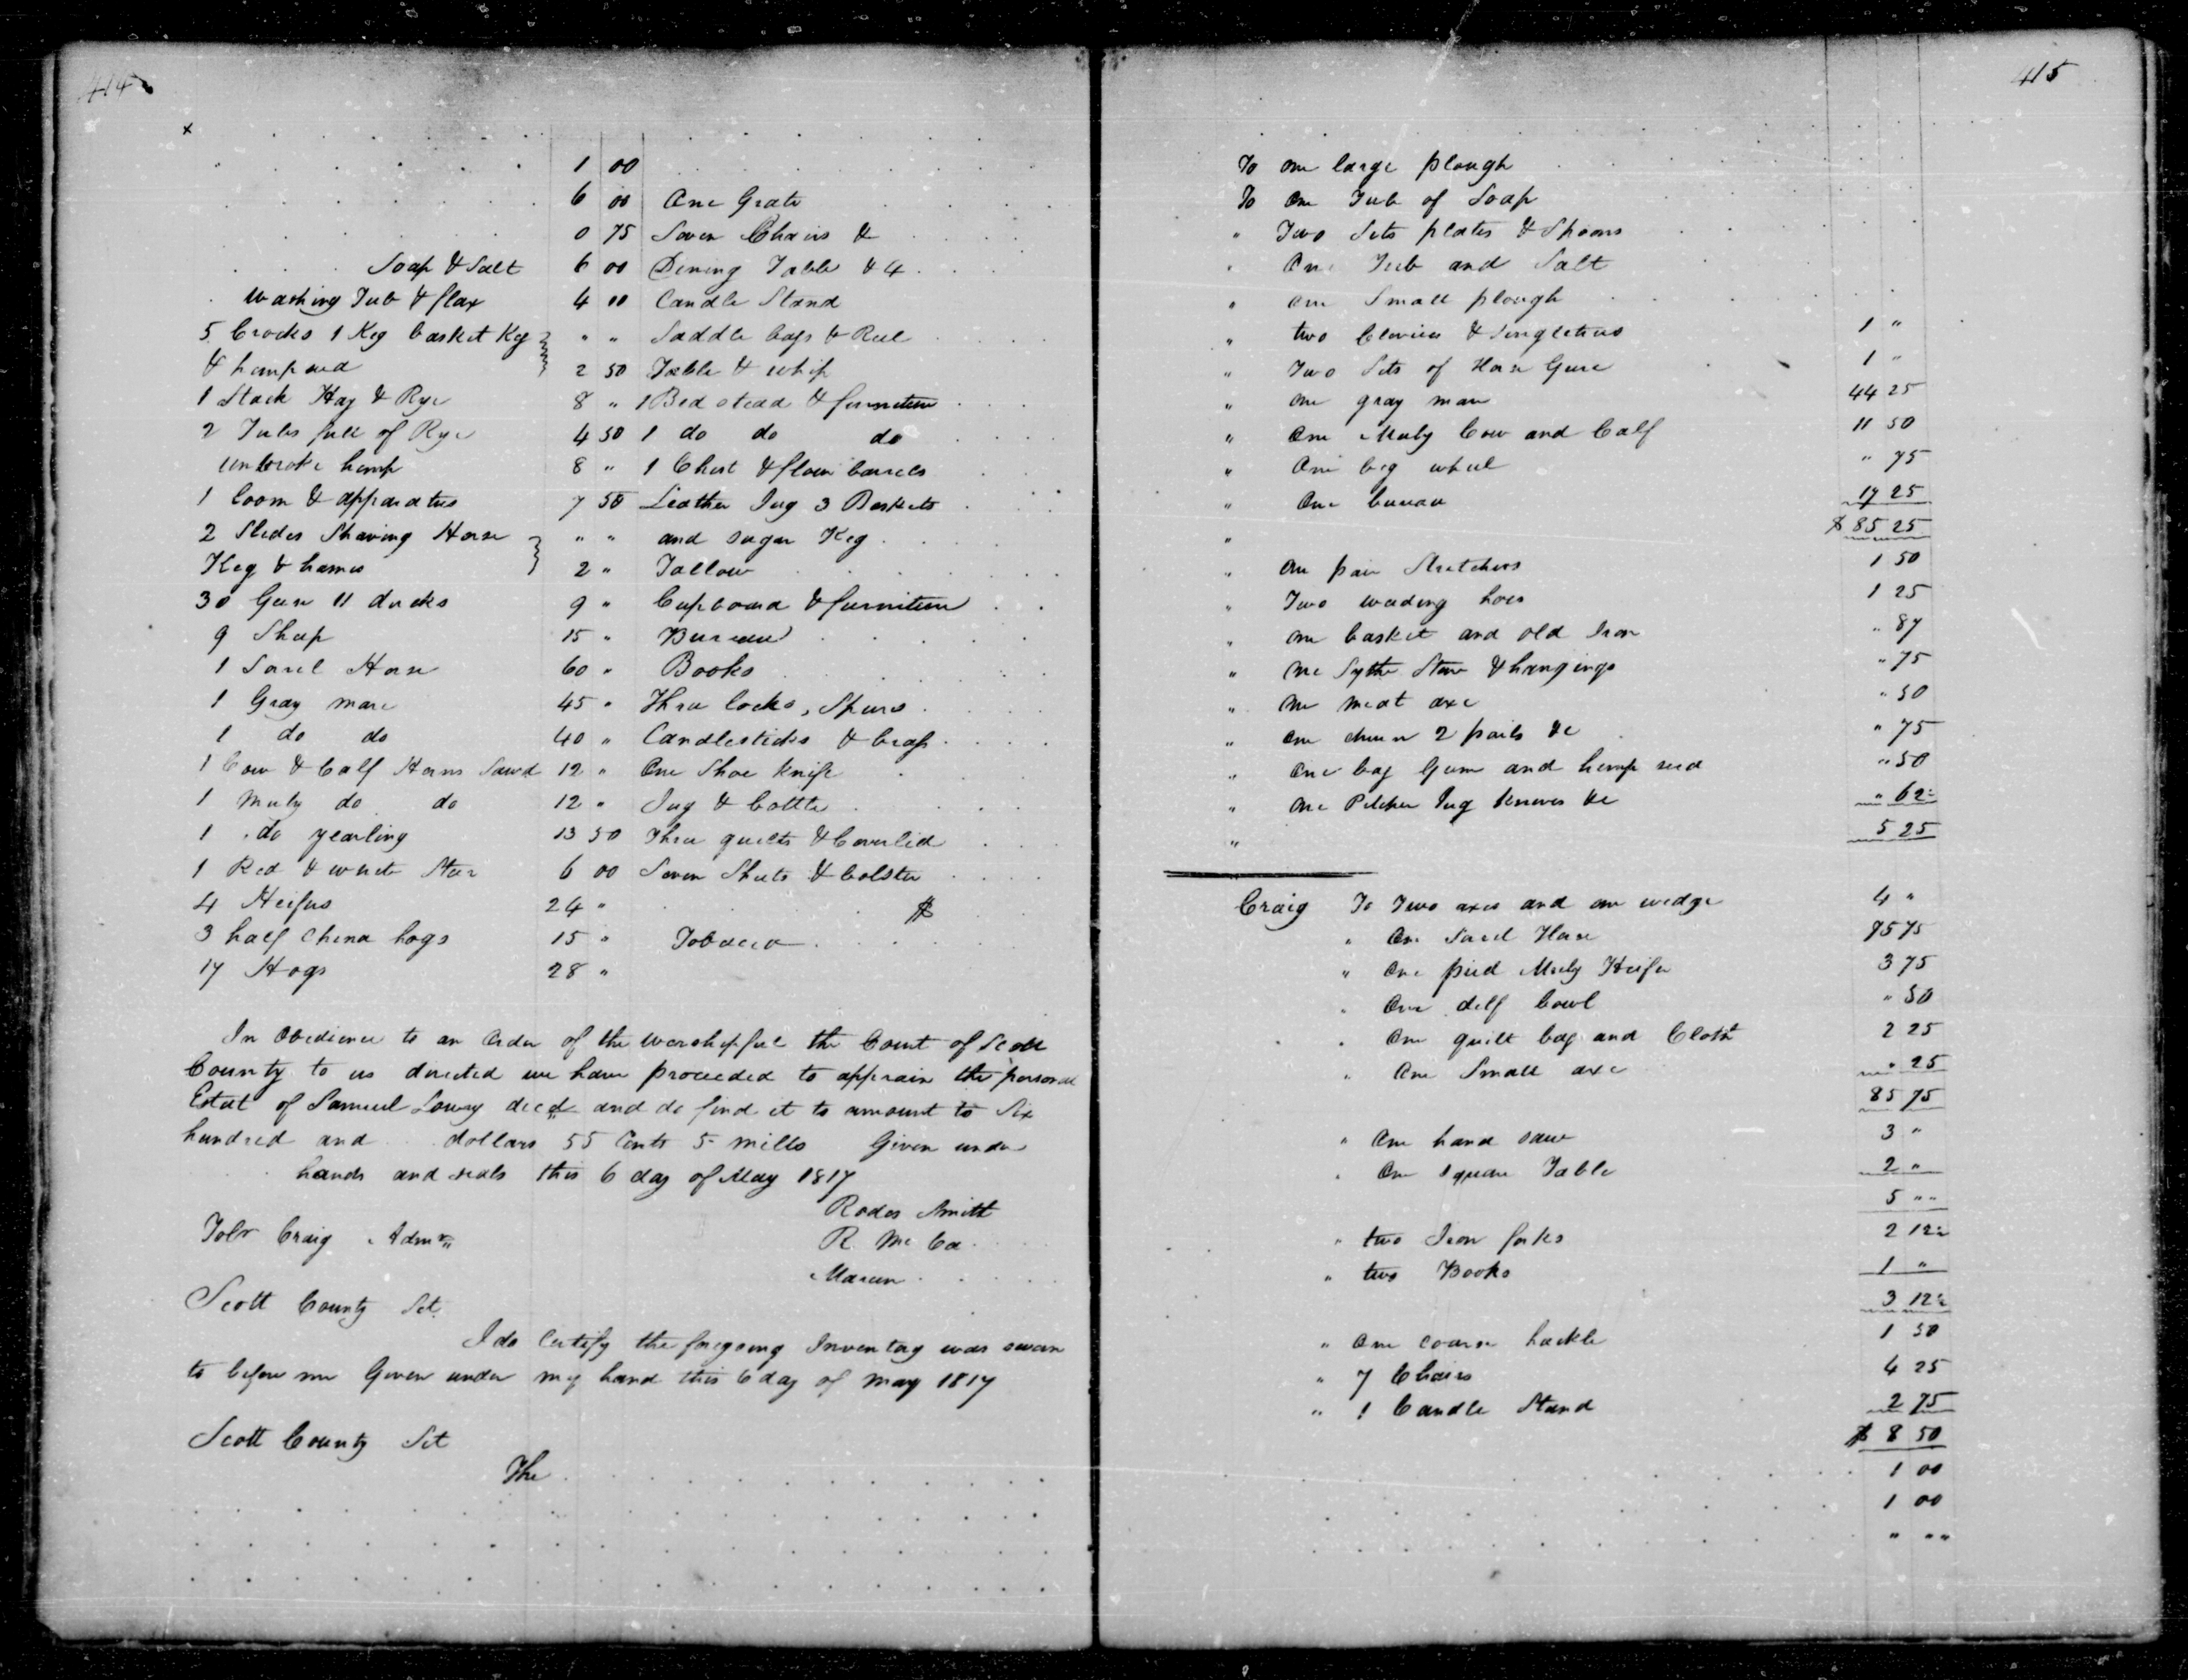 414
x
1 00
6 00 One Grate
0 75 Seven Chairs &
Soap & Salt 6 00 Dining Table & 4
Washing Tub & flax 4 00 Candle Stand
5 Crocks 1 Keg basket Keg " " Saddle bags & Reel
& hempseed 2 50 Table & whip
1 Stack Hay & Rye 8 " 1 Bed stead & furniture
2 Tubs full of Rye 4 50 1 do do do
unbroke hemp 8 " 1 Chest & flour barrels
1 loom & apparatus 7 50 Leather Jug 3 Baskets
2 Slides Shaving Horse " " and sugar Keg
Keg & hames 2 " Tallow
30 Geese 11 ducks 9 " Cupboard & furniture
9 Sheep 15 " Bureau
1 Sorel Horse 60 " Books
1 Gray mare 45 " Three locks, Spurs
1 do do 40 " Candlesticks &
1 Cow & Calf Horns Sawd 12 " One Shoe Knife
1 Muly do do 12 " Jug & bottle
1 do yearling 13 50 Three quilts & Coverlid
1 Red & white Steer 6 00 Seven Sheets & bolster
4 Heifers 24 " $
3 half China hogs 15 " Tobacco
17 Hogs 28 "
In Obedience to an Order of the worshipful the Court of Scott
County to us directed we have proceeded to appraise the personal
Estate of Samuel Lowry decd and do find it to amount to Six
hundred and dollars 55 Cents 5 mills Given under
hands and seals this 6 day of May 1817
Rodes Smith
Tolr Craig Admr R. Mc Ca
Marcen
Scott County Sct.
I do Certify the foregoing Inventory was sworn
to before me Given under my hand this 6 day of May 1817
Scott County Sct
The
415
To one large plough
To One Tub of Soap
" Two Sets plates & Spoons
" One Tub and Salt
" one Small plough
" two Clevices & Singletrees 1 "
" Two Sets of Horse Geere 1 "
" one gray mare 44 25
" One Muly Cow and Calf 11 50
" One big wheel " 75
" One bureau 17 25
" $ 85 25
" One pair Stretchers 1 50
" Two weeding hoes 1 25
" one basket and old Iron " 87
" one Sythe Stone & hangings " 75
" one meat axe " 50
" one churn 2 pails &c " 75
" One bag Gum and hemp seed " 50
" One Pitcher Jug knives &c " 62½
" 5 25
Craig To Two axes and one wedge 4 "
" One Sorel Horse 75 75
" One pied Muly Heifer 3 75
" One delf bowl " 50
" One quilt bag and Cloth 2 25
" One Small axe " 25
85 75
" One hand saw 3 "
" One square Table 2 "
5 " "
" two Iron forks 2 12½
" two Books 1 "
3 12½
" One coarse hackle 1 50
" 7 Chairs 4 25
" 1 Candle Stand 2 75
$ 8 50
1 00
1 00
" " "